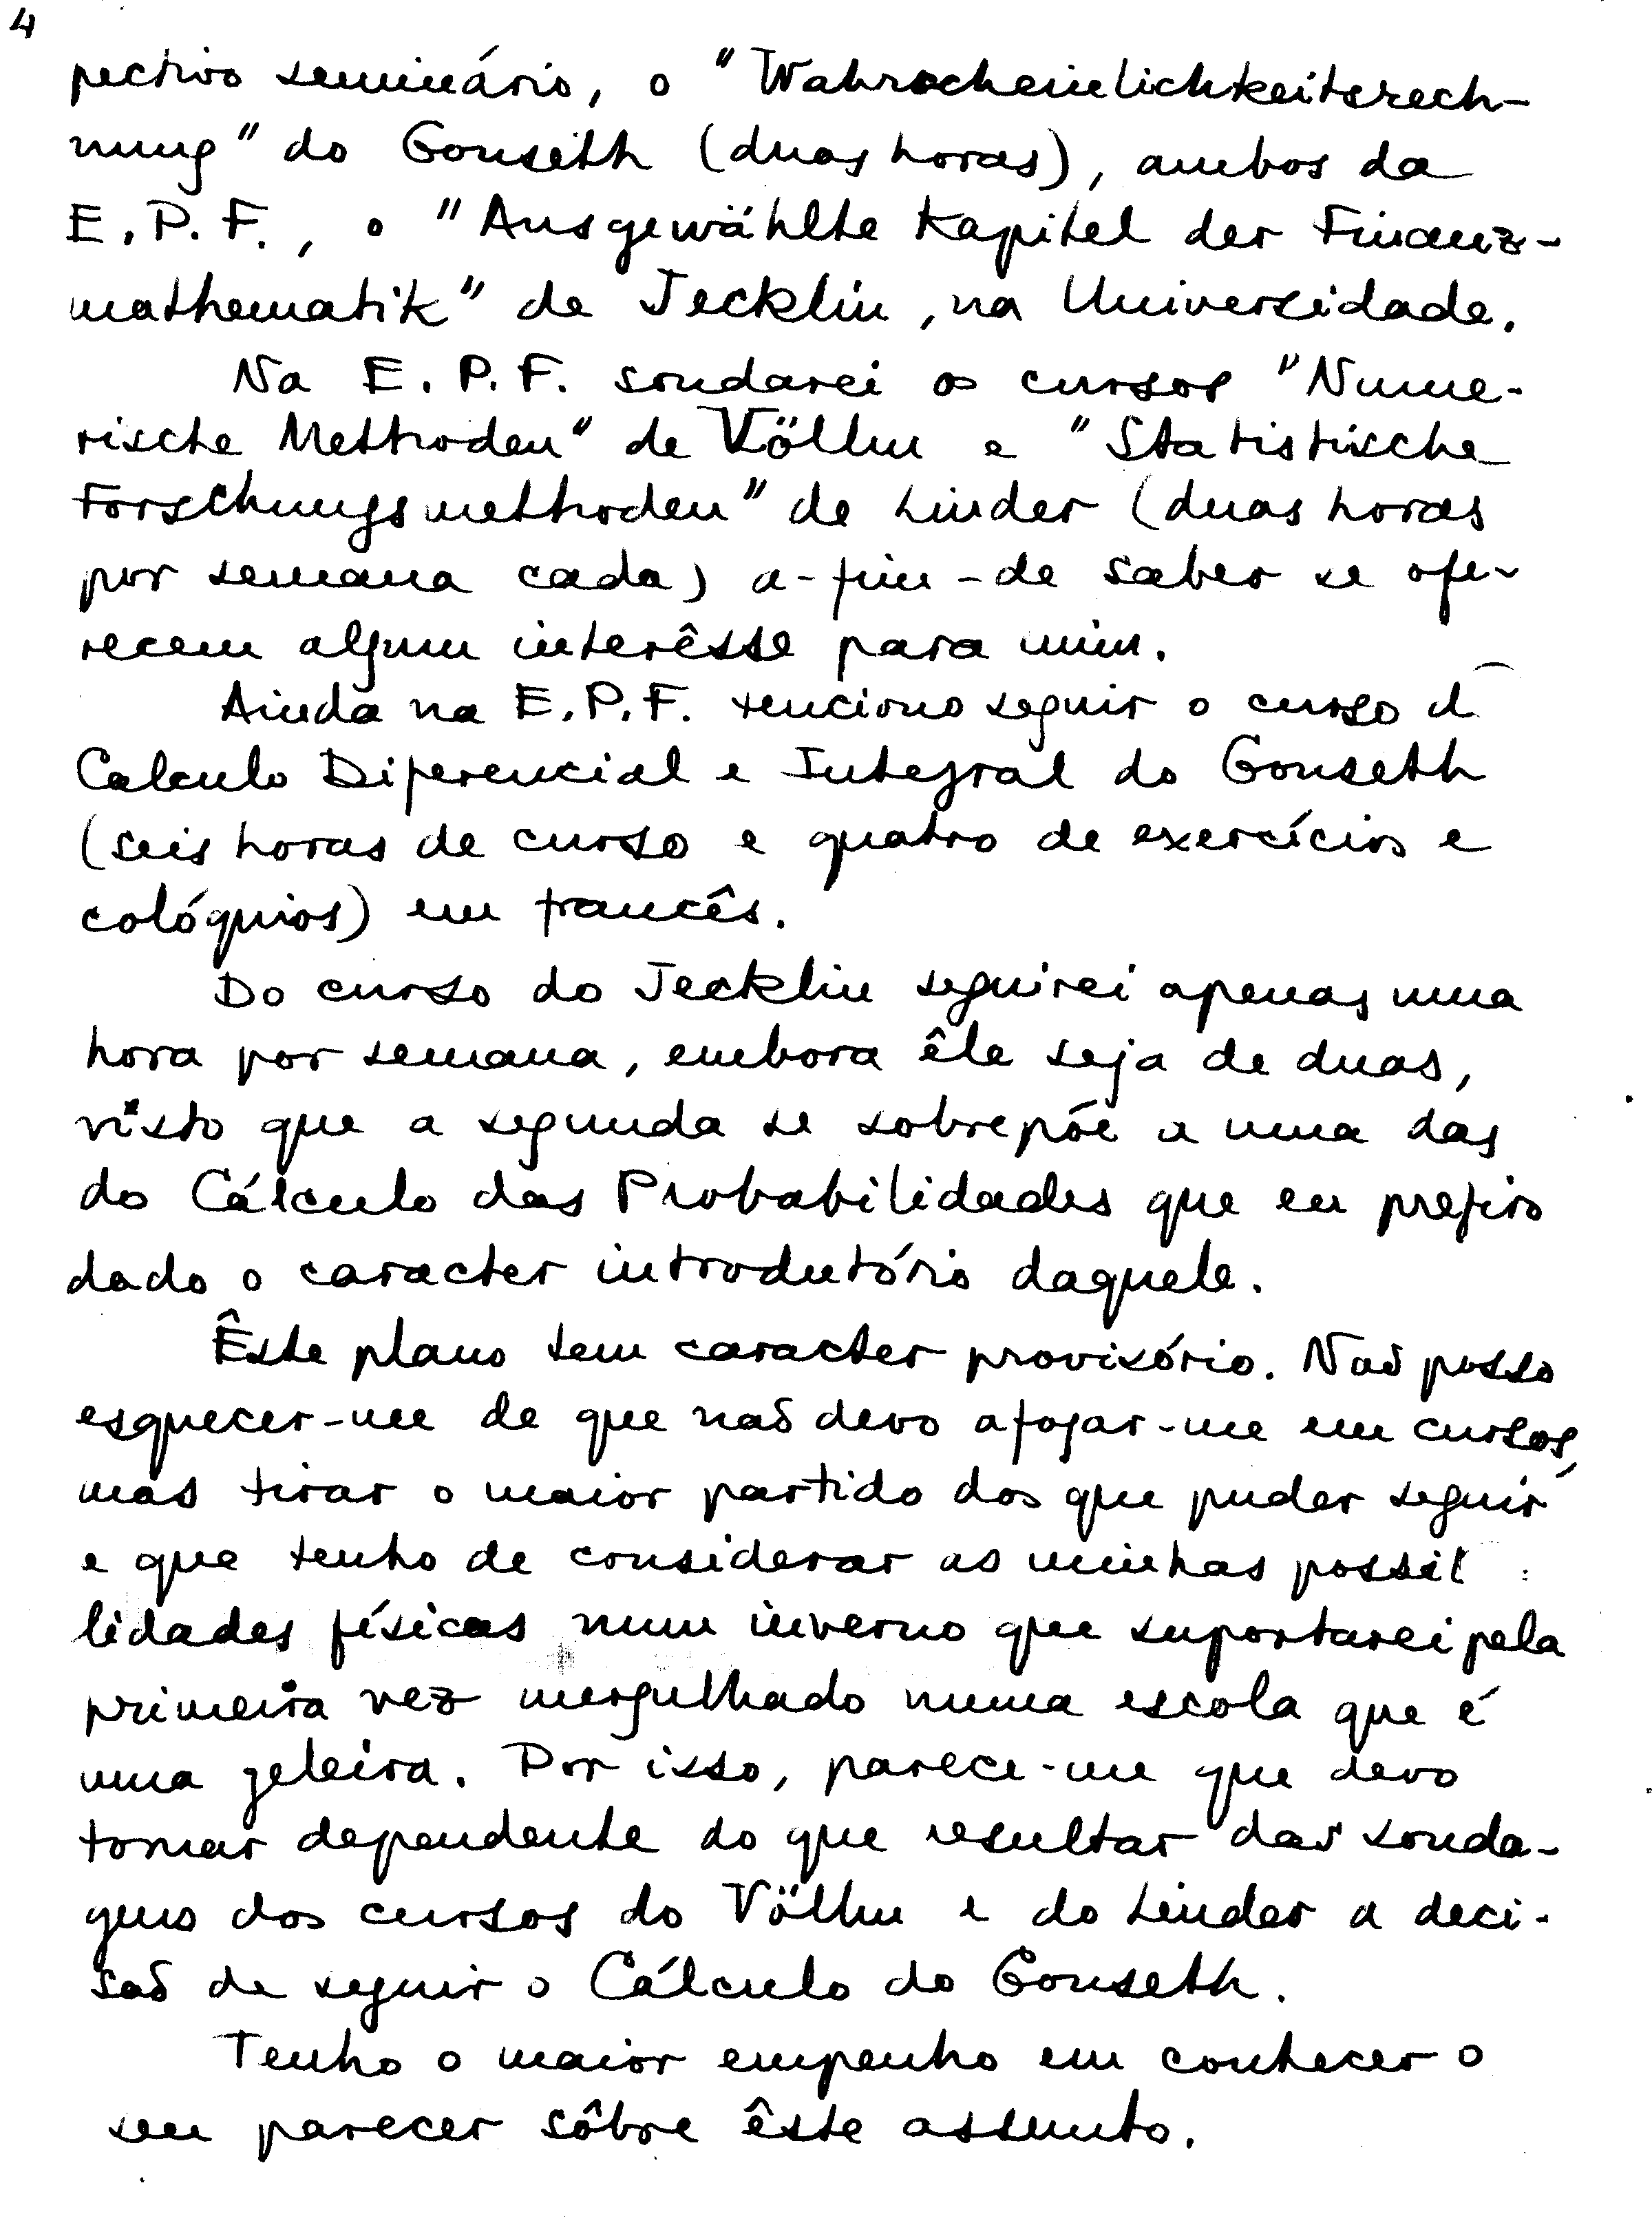 4
pectivo seminário, o "Wahrscheinlichkeitsrech-
nung" do Gonseth (duas horas), ambos da
E.P.F., o "Ausgewählte Kapitel der Finanz-
mathematik" de Jecklin, na Universidade.
Na E.P.F. sondarei os cursos "Nume-
rische Methoden" de Völlm e "Statistische
Forschungsmethoden" de Linder (duas horas
por semana cada) a-fim-de saber se ofe-
recem algum interêsse para mim.
Ainda na E.P.F. tenciono seguir o curso d
Calculo Diferencial e Integral do Gonseth
(seis horas de curso e quatro de exercícios e
colóquios) em francês.
Do curso do Jecklin seguirei apenas uma
hora por semana, embora êle seja de duas,
visto que a segunda se sobrepõe a uma das
do Cálculo das Probabilidades que eu prefiro
dado o caracter introdutório daquele.
Êste plano tem caracter provisório. Não posso
esquecer-me de que não devo afogar-me em cursos,
mas tirar o maior partido dos que puder seguir
e que tenho de considerar as minhas possib
lidades físicas num inverno que suportarei pela
primeira vez mergulhado numa escola que é
uma geleira. Por isso, parece-me que devo
tomar dependente do que resultar das sonda-
gens dos cursos do Völlm e do Linder a deci-
são de seguir o Cálculo do Gonseth.
Tenho o maior empenho em conhecer o
seu parecer sôbre êste assunto.